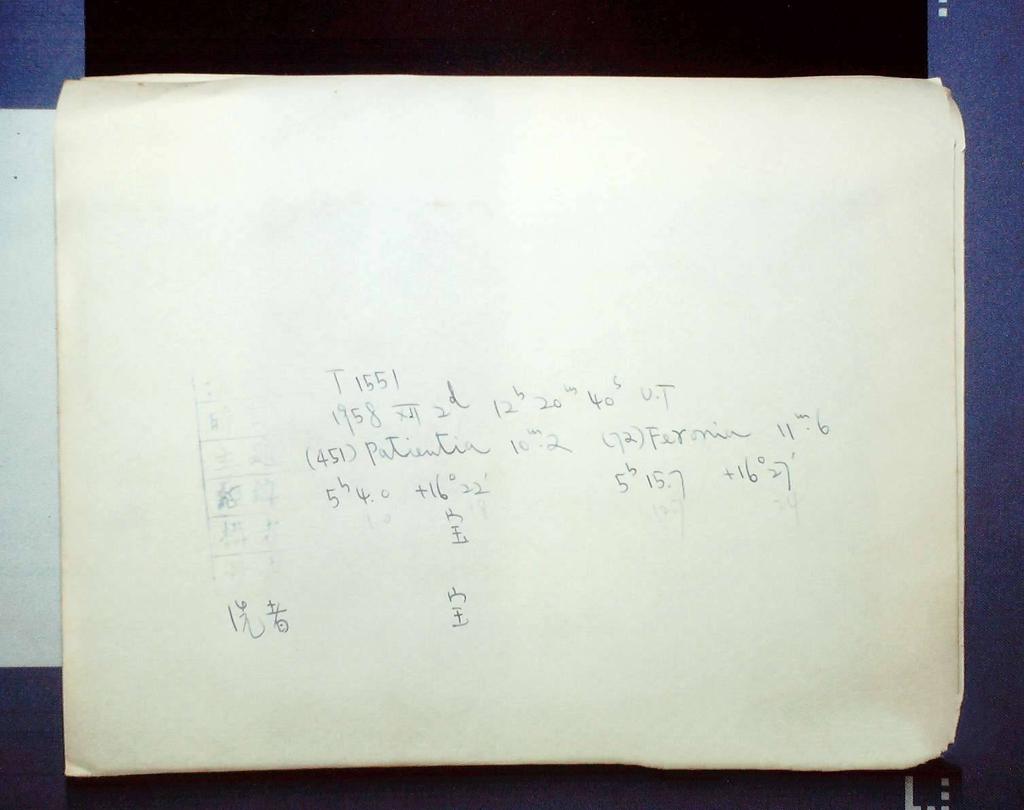 T 1551
1958 XII 2ᵈ 12ʰ 20ᵐ 40ˢ U.T
(451) Patientia 10ᵐ.2 (72) Feronia 11ᵐ.6
5ʰ 4.0 +16°22' 5ʰ 15.7 +16°27'
宝
洗者 宝